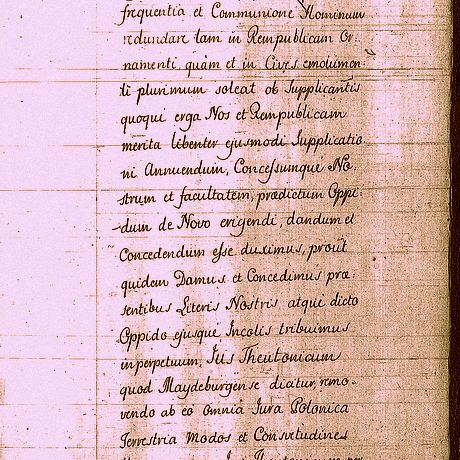 frequentia et Communione Hominum
redundare tam in Rempublicam Or-
namenti, quàm et in Cives emolumen-
ti plurimum soleat ob Supplicantis
quoqui erga Nos et Rempublicam
merita libenter ejusmodi Supplicatio-
ni Annuendum, Concessumqué No-
strum et facultatem, prædictum Oppi-
dum de Novo erigendi, dandum et
Concedendum esse duximus, proùt
quidem Damus et Concedimus præ-
sentibus Literis Nostris atqui dicto
Oppido ejusque Incolis tribuimus
in perpetuum, Jus Theutonicum
quod Maydeburgense dicitur, remo-
vendo ab eo omnia Jura Polonica
Terrestria Modos et Consvetudines